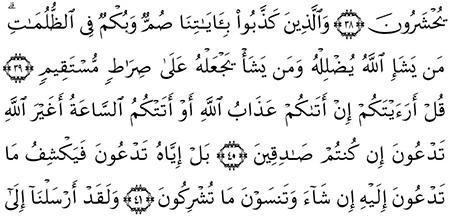 يُحْشَرُونَ ۝٣٨ وَٱلَّذِينَ كَذَّبُوا۟ بِـَٔايَـٰتِنَا صُمٌّ وَبُكْمٌ فِى ٱلظُّلُمَـٰتِ ۗ
مَن يَشَإِ ٱللَّهُ يُضْلِلْهُ وَمَن يَشَأْ يَجْعَلْهُ عَلَىٰ صِرَٰطٍ مُّسْتَقِيمٍ ۝٣٩
قُلْ أَرَءَيْتَكُمْ إِنْ أَتَىٰكُمْ عَذَابُ ٱللَّهِ أَوْ أَتَتْكُمُ ٱلسَّاعَةُ أَغَيْرَ ٱللَّهِ
تَدْعُونَ إِن كُنتُمْ صَـٰدِقِينَ ۝٤٠ بَلْ إِيَّاهُ تَدْعُونَ فَيَكْشِفُ مَا
تَدْعُونَ إِلَيْهِ إِن شَآءَ وَتَنسَوْنَ مَا تُشْرِكُونَ ۝٤١ وَلَقَدْ أَرْسَلْنَآ إِلَىٰٓ